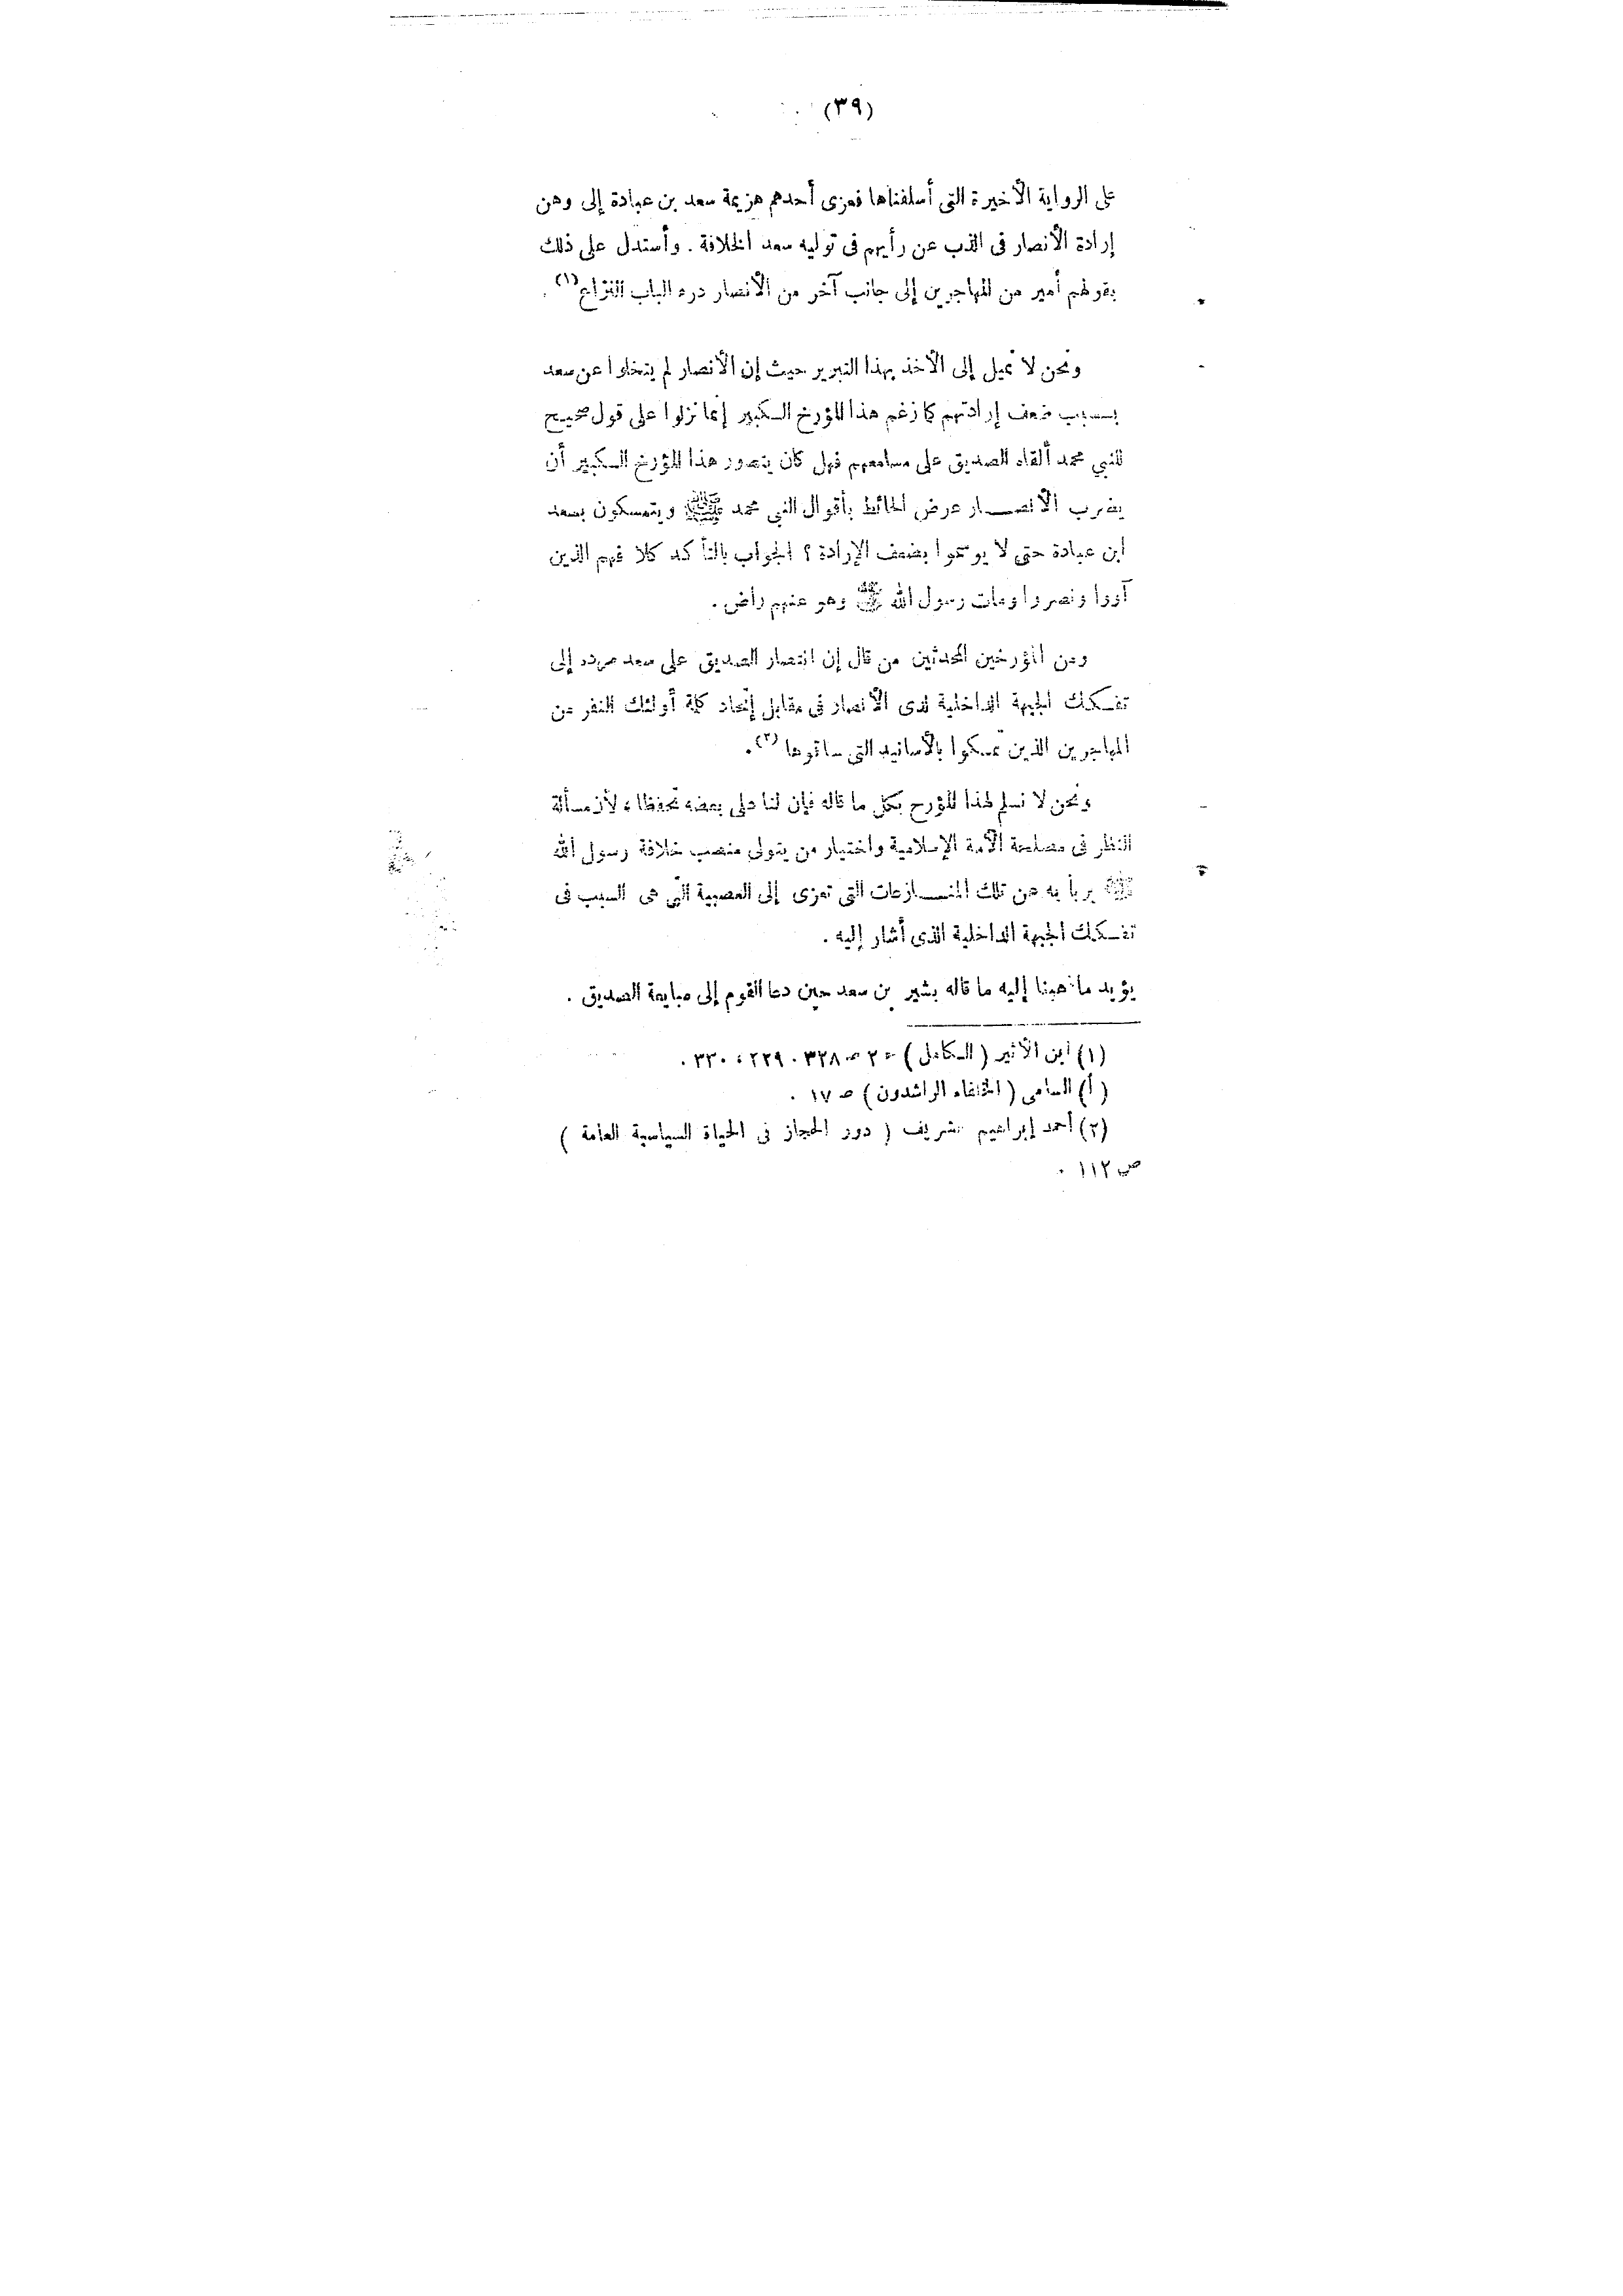 (٣٩)
على الرواية الأخيرة التى أسلفناها فعزى أحدهم هزيمة سعد بن عبادة إلى وهن
إرادة الأنصار فى الذب عن رأيهم فى توليه سعد الخلافة . وأستدل على ذلك
بقولهم أمير من المهاجرين إلى جانب آخر من الأنصار درء الباب النزاع (١) .
ونحن لا نميل إلى الأخذ بهذا التبرير حيث إن الأنصار لم يتخلوا عن سعد
بسبب ضعف إرادتهم كما زعم هذا المؤرخ الكبير إنما نزلوا على قول صحيح
للنبي محمد ألقاه الصديق على مسامعهم فهل كان يتصور هذا المؤرخ الكبير أن
يضرب الأنصار عرض الحائط بأقوال النبى محمد ﷺ ويتمسكون بسعد
ابن عبادة حتى لا يوسموا بضعف الإرادة ؟ الجواب بالتأكد كلا فهم الذين
آووا ونصروا ومات رسول الله ﷺ وهو عنهم راض .
ومن المؤرخين المحدثين من قال إن انتصار الصديق على سعد مرده إلى
تفكك الجبهة الداخلية لدى الأنصار فى مقابل إتحاد كلمة أولئك النفر من
المهاجرين الذين تمسكوا بالأسانيد التى ساقوها (٢) .
ونحن لا نسلم لهذا المؤرح بكل ما قاله فإن لنا على بعضه تحفظا ، لأن مسألة
النظر فى مصلحة الأمة الإسلامية واختيار من يتولى منصب خلافة رسول الله
ﷺ يربأ به عن تلك المنازعات التى تعزى إلى العصبية التى هى السبب فى
تفكك الجبهة الداخلية الذى أشار إليه .
يؤيد ما ذهبنا إليه ما قاله بشير بن سعد حين دعا القوم إلى مبايعة الصديق .
(١) ابن الأثير ( الكامل ) ج ٢ ص ٣٢٨ . ٢٢٩ ، ٣٣٠ .
(أ) السامى ( الخلفاء الراشدون ) ص ١٧ .
(٢) أحمد إبراهيم شريف ( دور الحجاز فى الحياة السياسية العامة )
ص ١١٢ .